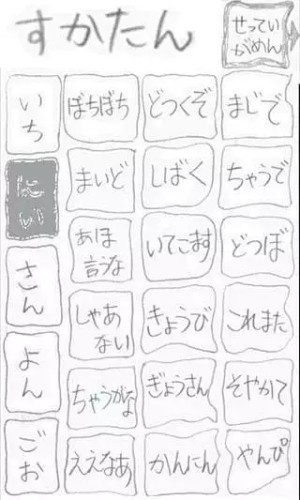 すかたん
せってい
がめん
いち
ぼちぼち
どつくぞ
まじで
にい
まいど
しばく
ちゃうで
さん
あほ
言うな
いてこます
どつぼ
よん
しゃあ
ない
きょうび
これまた
ごお
ちゃうがな
ぎょうさん
そやかて
ええなあ
かんにん
やんぴ